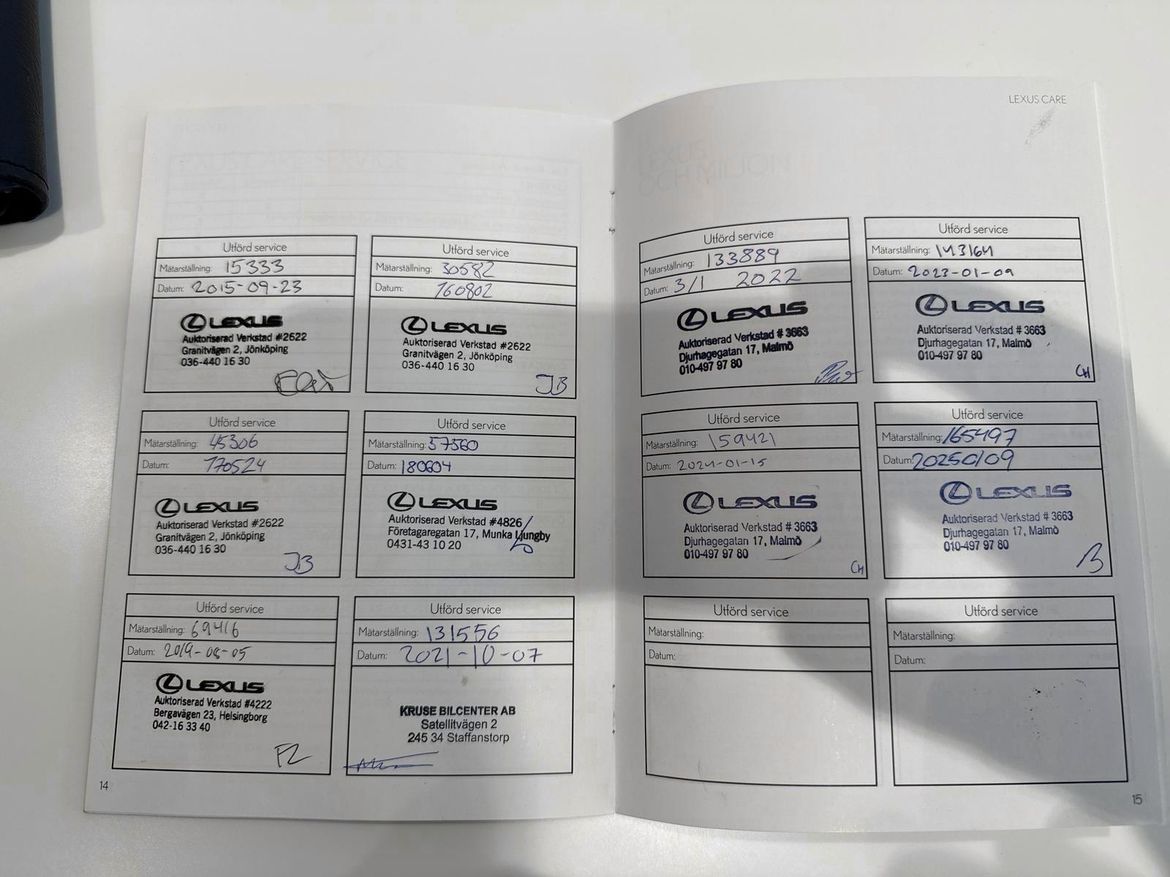 Utförd service
Mätarställning: 15333
Datum: 2015-09-23
LEXUS
Auktoriserad Verkstad #2622
Granitvägen 2, Jönköping
036-440 16 30
Utförd service
Mätarställning: 30582
Datum: 160802
LEXUS
Auktoriserad Verkstad #2622
Granitvägen 2, Jönköping
036-440 16 30
JB
Utförd service
Mätarställning: 45306
Datum: 170524
LEXUS
Auktoriserad Verkstad #2622
Granitvägen 2, Jönköping
036-440 16 30
JB
Utförd service
Mätarställning: 57560
Datum: 180604
LEXUS
Auktoriserad Verkstad #4826
Företagaregatan 17, Munka Ljungby
0431-43 10 20
Utförd service
Mätarställning: 69416
Datum: 2019-08-05
LEXUS
Auktoriserad Verkstad #4222
Bergavägen 23, Helsingborg
042-16 33 40
FZ
Utförd service
Mätarställning: 131556
Datum: 2021-10-07
KRUSE BILCENTER AB
Satellitvägen 2
245 34 Staffanstorp
14
LEXUS CARE
Utförd service
Mätarställning: 133889
Datum: 3/1 2022
LEXUS
Auktoriserad Verkstad # 3663
Djurhagegatan 17, Malmö
010-497 97 80
Utförd service
Mätarställning: 143164
Datum: 2023-01-09
LEXUS
Auktoriserad Verkstad # 3663
Djurhagegatan 17, Malmö
010-497 97 80
CH
Utförd service
Mätarställning: 159421
Datum: 2024-01-15
LEXUS
Auktoriserad Verkstad # 3663
Djurhagegatan 17, Malmö
010-497 97 80
CH
Utförd service
Mätarställning: 165497
Datum: 20250109
LEXUS
Auktoriserad Verkstad # 3663
Djurhagegatan 17, Malmö
010-497 97 80
Utförd service
Mätarställning:
Datum:
Utförd service
Mätarställning:
Datum:
15